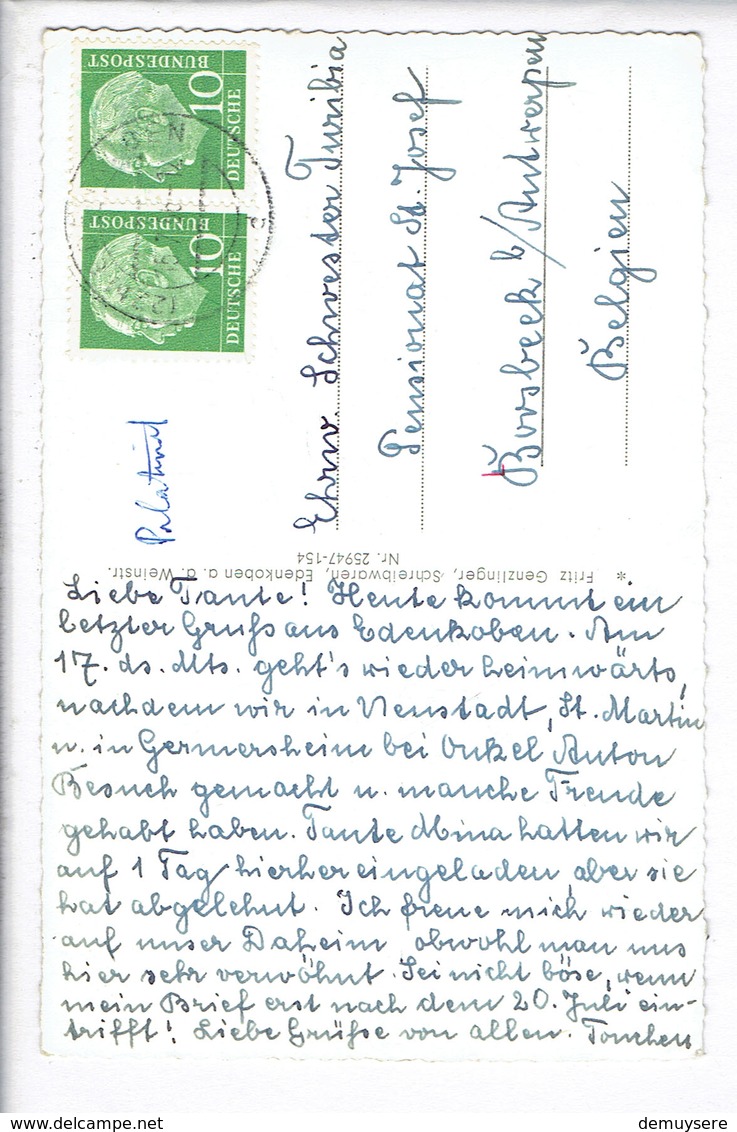 DEUTSCHE
BUNDESPOST
10
DEUTSCHE
BUNDESPOST
10
Ehrw. Schwester Turibia
Pensionat St. Josef
Borsbeek b/Antwerpen
Belgien
Palatinat
* Fritz Genzlinger, Schreibwaren, Edenkoben a. d. Weinstr.
Nr. 25947-154
Liebe Tante! Heute kommt ein
letzter Gruß aus Edenkoben. Am
17. ds. Mts. geht's wieder heimwärts,
nachdem wir in Neustadt, St. Martin
u. in Germersheim bei Onkel Anton
Besuch gemacht u. manche Freude
gehabt haben. Tante Mina hatten wir
auf 1 Tag hierher eingeladen, aber sie
hat abgelehnt. Ich freue mich wieder
auf unser Daheim obwohl man uns
hier sehr verwöhnt. Sei nicht böse, wenn
mein Brief erst nach dem 20. Juli ein-
trifft! Liebe Grüße von allen.
demuysere